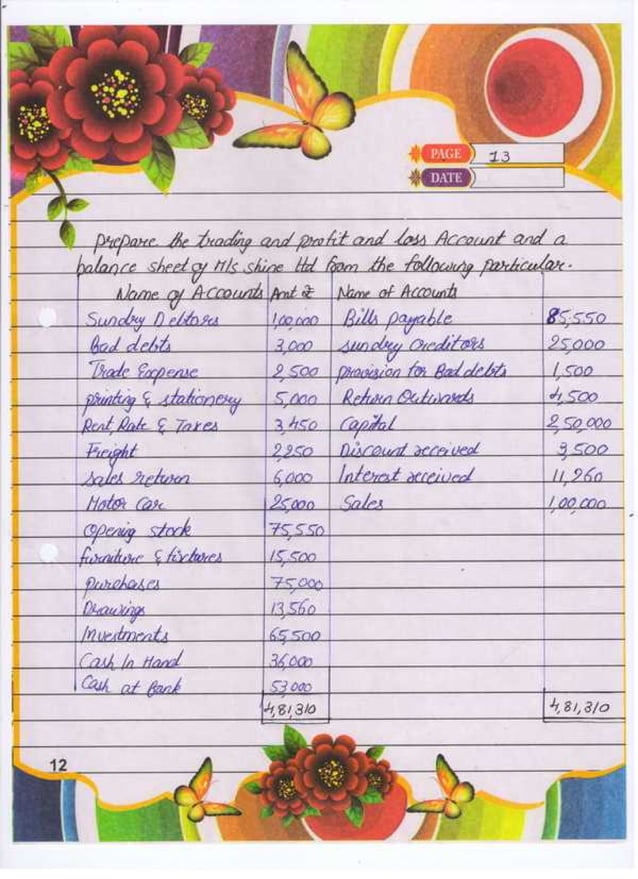 PAGE 13
DATE
Prepare the trading and profit and loss Account and a
balance sheet of M/s shine ltd from the following particular.
Name of Accounts Amt ₹ Name of Accounts
Sundry Debtors 1,00,000 Bills payable 85,550
Bad debts 3,000 sundry creditors 25,000
Trade Expense 2,500 provision for Bad debts 1,500
printing & stationery 5,000 Return Outwards 4,500
Rent, Rate & Taxes 3,450 Capital 2,50,000
Freight 2,250 Discount received 3,500
sales return 6,000 Interest received 11,260
Motor Car 25,000 Sales 1,00,000
Opening stock 75,550
furniture & fixtures 15,500
purchases 75,000
Drawings 13,560
Investments 65,500
Cash In Hand 36,000
Cash at Bank 53,000
4,81,310 4,81,310
12